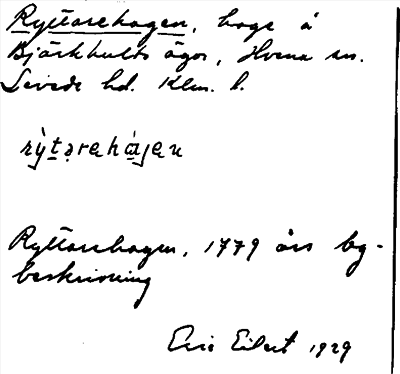 Ryttarehagen, hage å
Björkhulds ägor, Hvena sn.
Sevede hd. Klm. l.
rỳtạrehágen
Ryttarehagen, 1779 års by-
beskrivning
Eric Eilert 1929